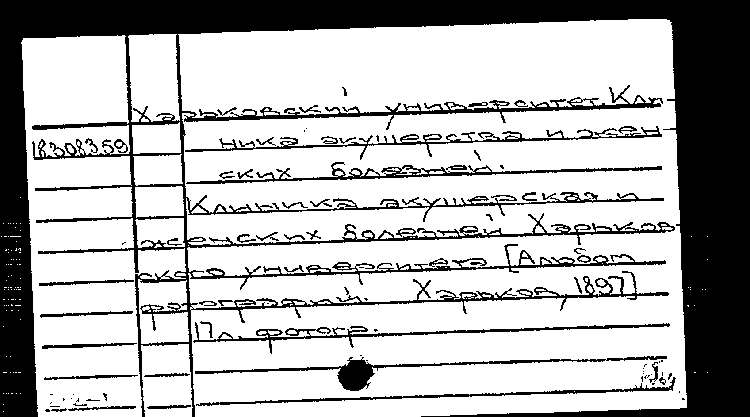 Харьковский университет. Кли-
18.308.359
ника акушерства и жен-
ских болезней.
Клиника акушерская и
женских болезней Харьков-
ского университета [Альбом
фотографий. Харьков, 1897]
17 л. фотогр.